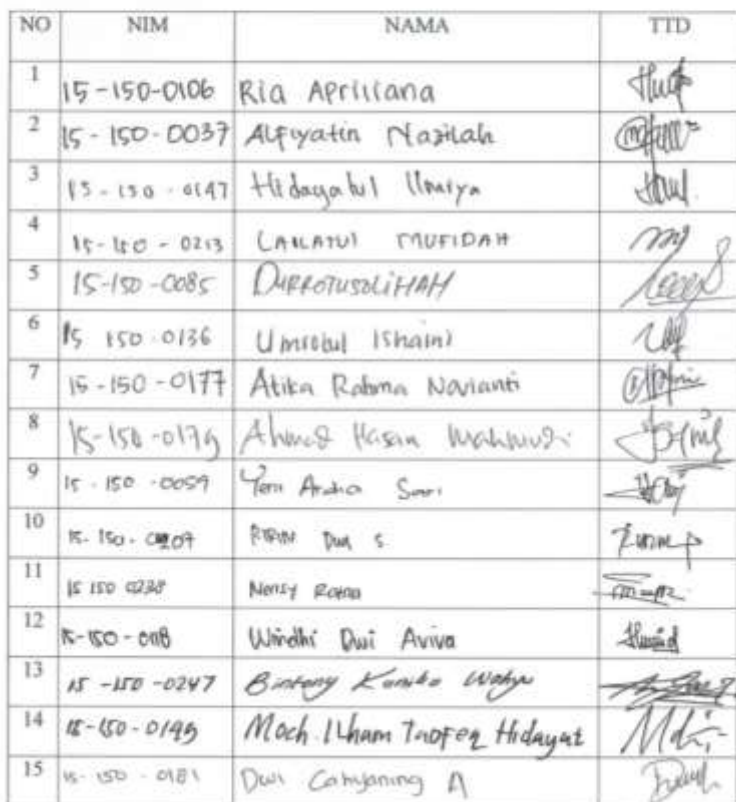 NO NIM NAMA TTD
1 15-150-0106 Ria Apriliana
2 15-150-0037 Alfiyatin Nazilah
3 15-150-0147 Hidayatul Ilmiya
4 15-150-0213 LAILATUL MUFIDAH
5 15-150-0085 DURROTUSOLIHAH
6 15 150-0136 Umrotul Ishaini
7 15-150-0177 Atika Rahma Novianti
8 15-150-0179 Ahmad Hasan Mahmudi
9 15-150-0059 Yeni Sari
10 15-150- Dwi S
11 15 150 0238 Nensy Ratna
12 15-150-0118 Windhi Dwi Aviva
13 15-150-0247 Bintang Wahyu
14 15-150-0149 Moch. Ilham Taofeq Hidayat
15 15-150-0181 Dwi Cahyaning A